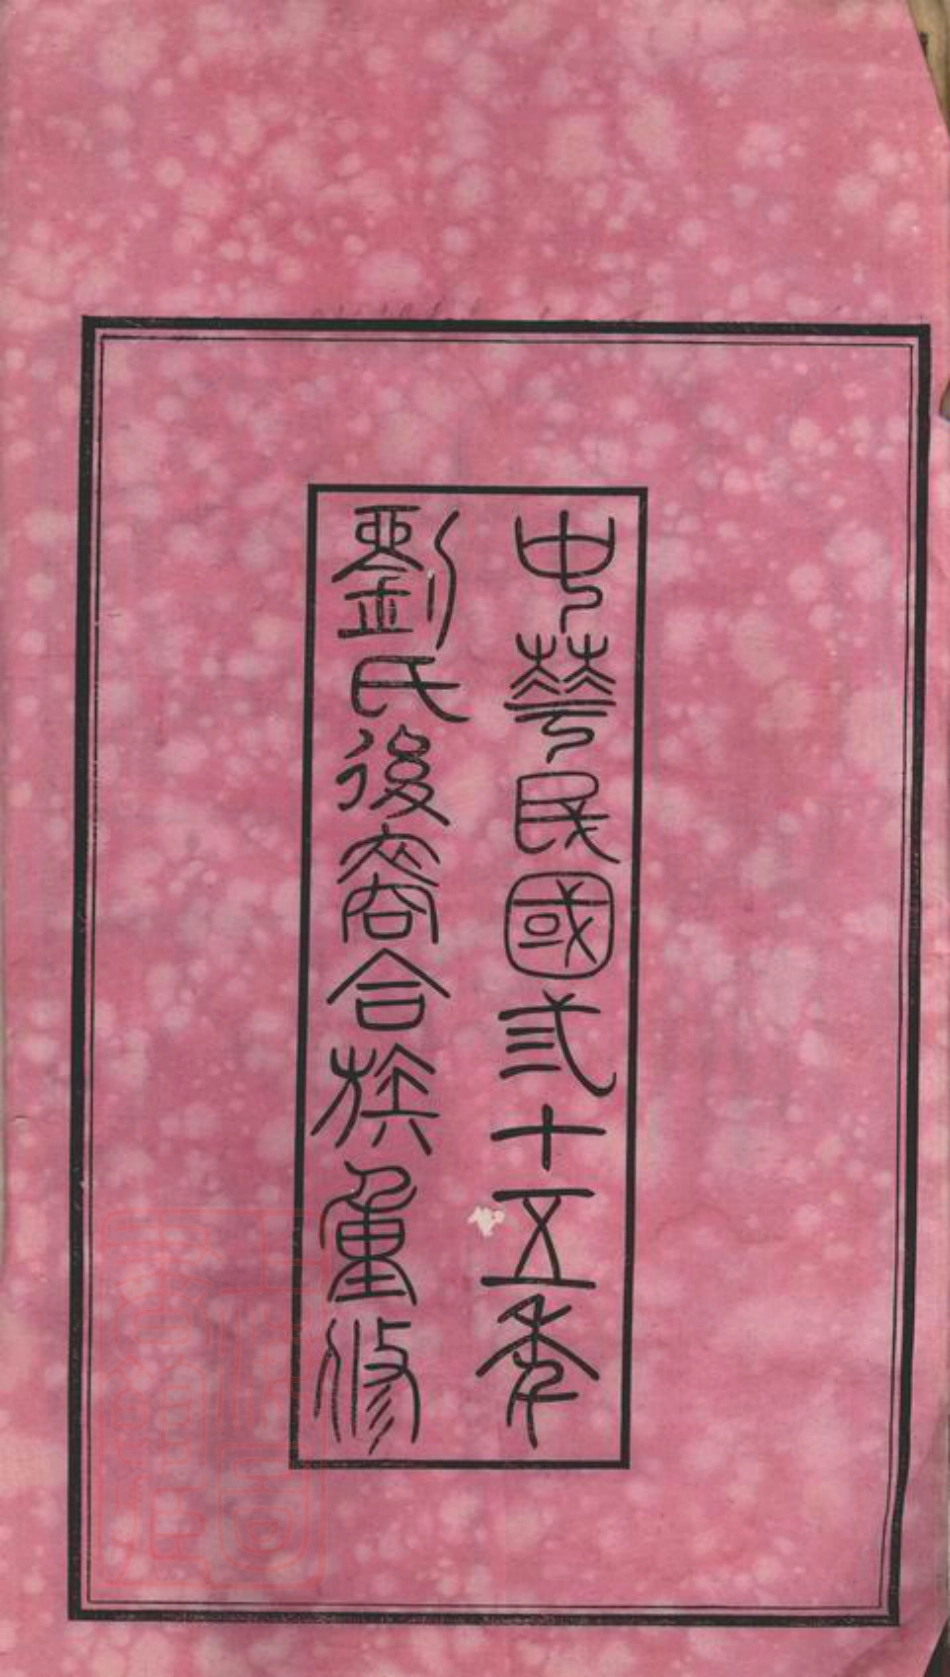 中華民國弍十五年
劉氏後裔合族重修